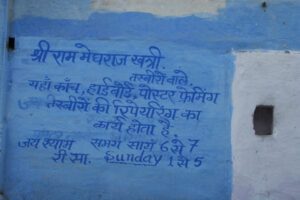 श्री राम मेघराज खत्री
तस्वीरों वाले,
यहाँ काँच, हार्डबोर्ड, पोस्टर फ्रेमिंग
तस्वीरों की रिपेयरिंग का
कार्य होता है
जय श्याम समय सायं 6 से 7
Sunday 1 से 5